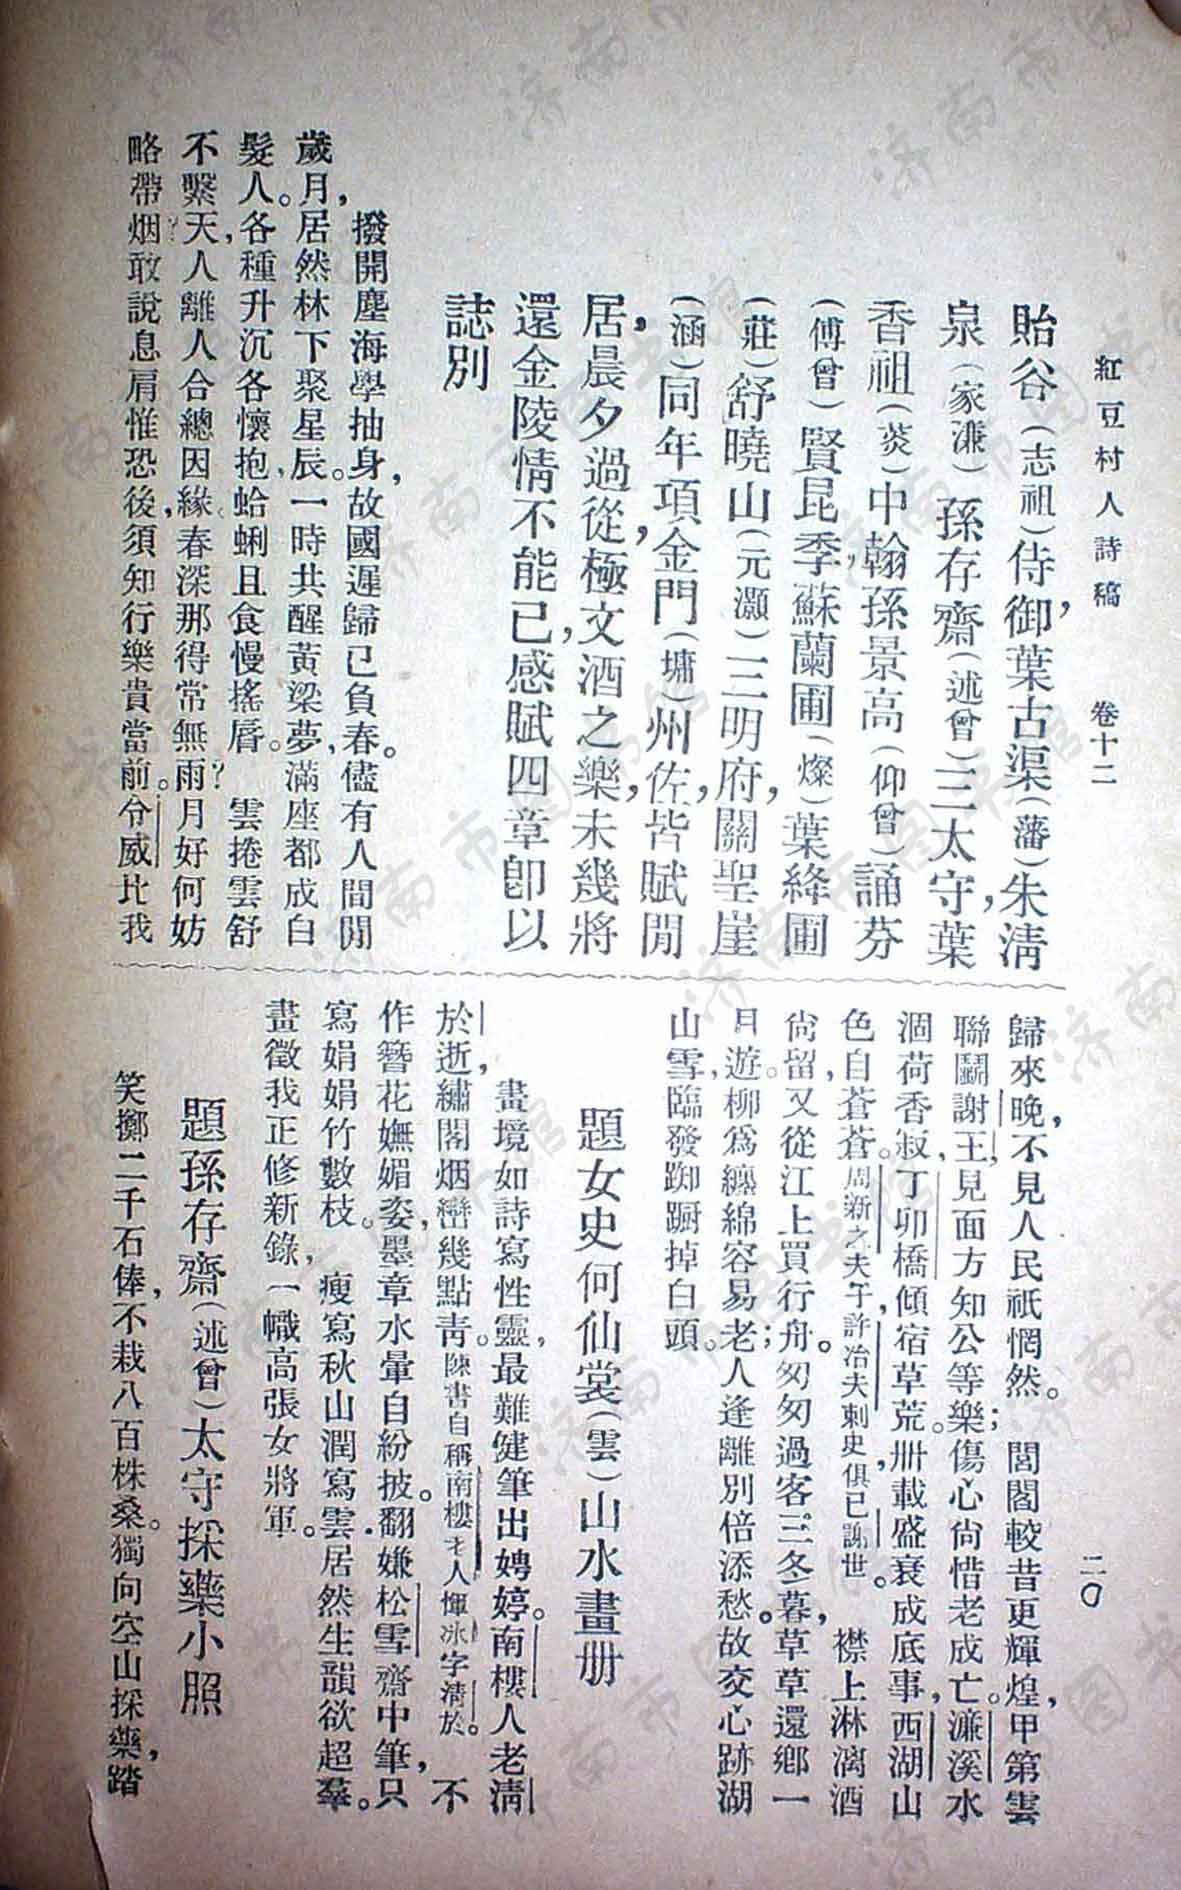 紅豆村人詩稿　卷十二　二〇
貽谷(志祖)侍御，葉古渠(藩)朱清
泉(家濂)孫存齋(述曾)三太守，葉
香祖(葓)中翰，孫景高(仰曾)誦芬
(傅曾)賢昆季，蘇蘭圃(燦)葉絳圃
(莊)舒曉山(元灝)三明府，關聖崖
(涵)同年，項金門(墉)州佐，皆賦閒
居，晨夕過從，極文酒之樂，未幾將
還金陵，情不能已，感賦四章，卽以
誌別
撥開塵海學抽身，故國遲歸已負春。儘有人間閒
歲月，居然林下聚星辰。一時共醒黃梁夢，滿座都成白
髮人。各種升沉各懷抱，蛤蜊且食慢搖脣。　雲捲雲舒
不繫天，人離人合總因緣。春深那得常無雨？月好何妨
略帶烟？敢說息肩惟恐後，須知行樂貴當前。令威比我
歸來晚，不見人民祇惘然。　閭閻較昔更輝煌，甲第雲
聯鬭謝王，見面方知公等樂；傷心尙惜老成亡。濂溪水
涸荷香寂，丁卯橋傾宿草荒。卌載盛衰成底事，西湖山
色自蒼蒼。周新之夫子，許冶夫刺史俱已謝世。　襟上淋漓酒
尙留，又從江上買行舟。匆匆過客三冬暮，草草還鄉一
月遊。柳爲纏綿容易老；人逢離別倍添愁。故交心跡湖
山雪，臨發踟躕掉白頭。
題女史何仙裳(雲)山水畫册
畫境如詩寫性靈，最難健筆出娉婷。南樓人老清
於逝，繡閣烟巒幾點靑。陳書自稱南樓老人惲冰字清於。　不
作簪花嫵媚姿，墨章水暈自紛披。翻嫌松雪齋中筆，只
寫娟娟竹數枝。　瘦寫秋山潤寫雲，居然生韻欲超羣。
畫徵我正修新錄，一幟高張女將軍。
題孫存齋(述曾)太守採藥小照
笑擲二千石俸，不栽八百株桑。獨向空山採藥，踏